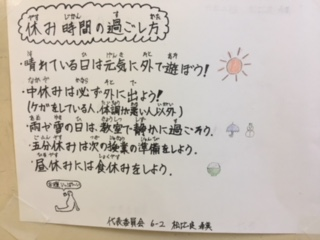 休み時間の過ごし方
・晴れている日は元気に外で遊ぼう!
・中休みは必ず外に出よう!
(ケガをしている人、体調が悪い人以外)
・雨か雪の日は、教室で静かに過ごそう。
・五分休みは次の授業の準備をしよう。
・昼休みには食休みをしよう。
代表委員会 6-2